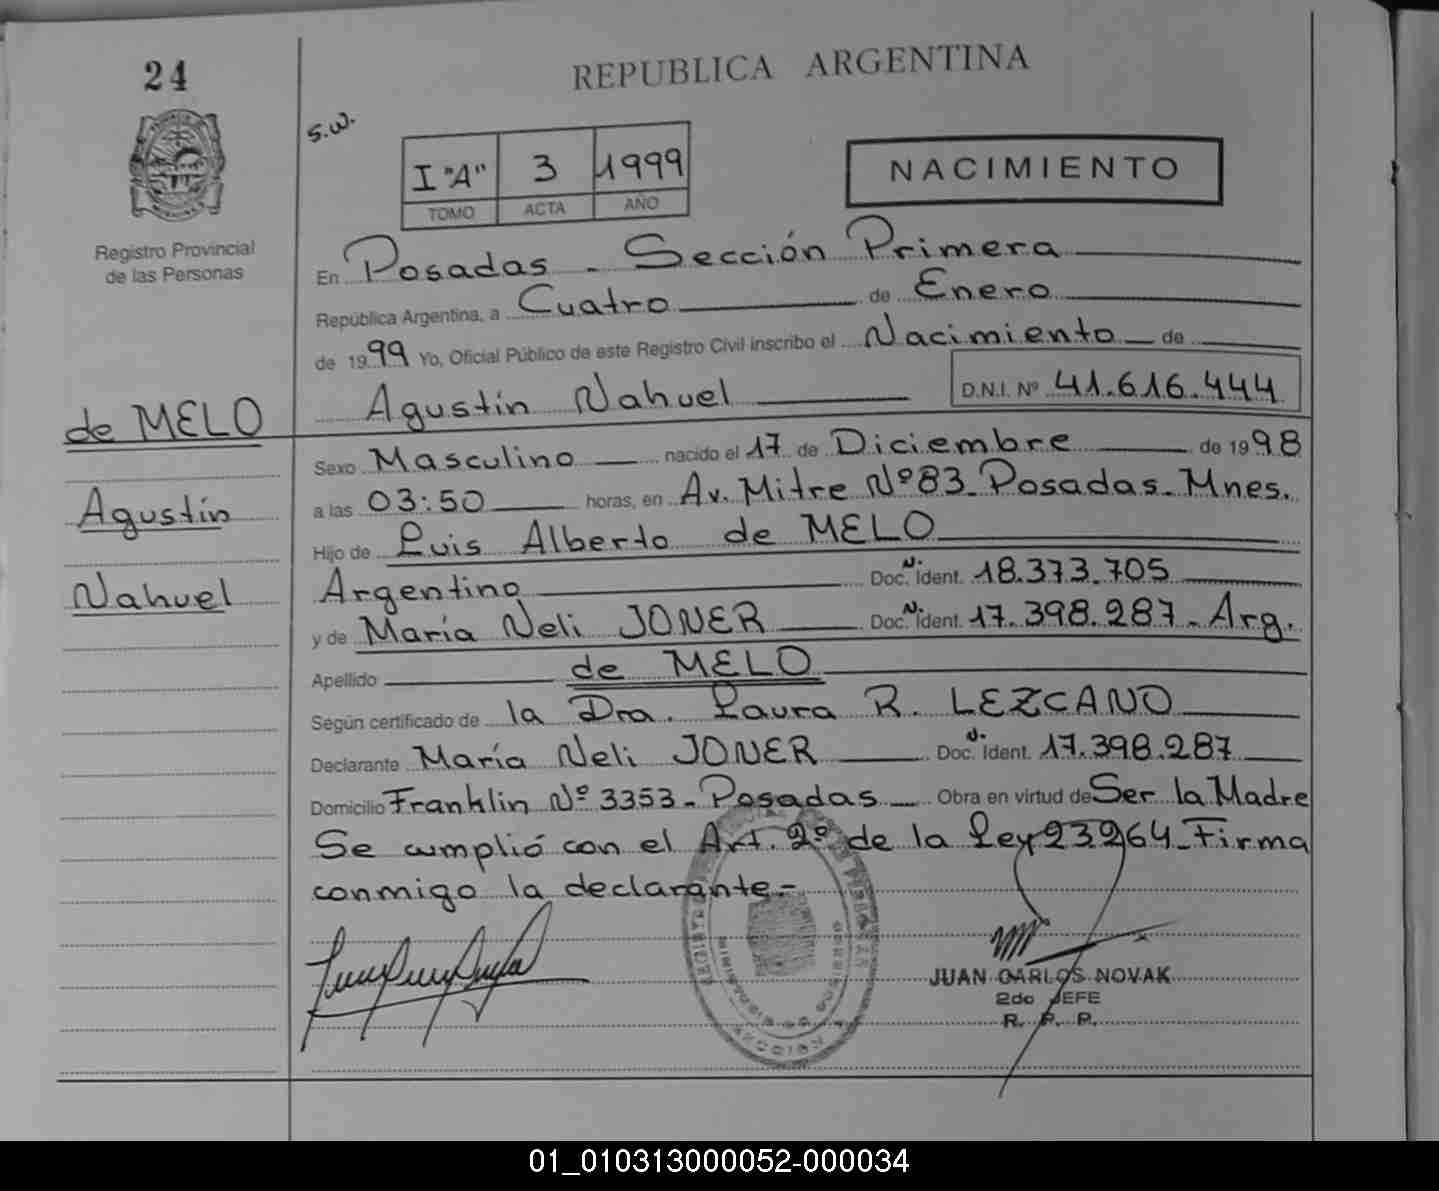 24
REPUBLICA ARGENTINA
S.W.
I "A" 3 1999
TOMO ACTA AÑO
NACIMIENTO
Registro Provincial
de las Personas
En Posadas - Sección Primera
República Argentina, a Cuatro de Enero
de 1999 Yo, Oficial Público de este Registro Civil inscribo el Nacimiento de
Agustín Nahuel D.N.I. Nº 41.616.444
de MELO
Agustín
Nahuel
Sexo Masculino nacido el 17 de Diciembre de 1998
a las 03:50 horas, en Av. Mitre Nº 83_Posadas_Mnes.
Hijo de Luis Alberto de MELO
Argentino Doc. N. Ident. 18.373.705
y de María Neli JONER Doc. N. Ident. 17.398.287-Arg.
Apellido de MELO
Según certificado de la Dra. Laura R. LEZCANO
Declarante María Neli JONER Doc. N. Ident. 17.398.287
Domicilio Franklin Nº 3353-Posadas Obra en virtud de Ser la Madre
Se cumplió con el Art. 2º de la Ley 23264_Firma
conmigo la declarante-
JUAN CARLOS NOVAK
2do JEFE
R. P. P.
01_010313000052-000034